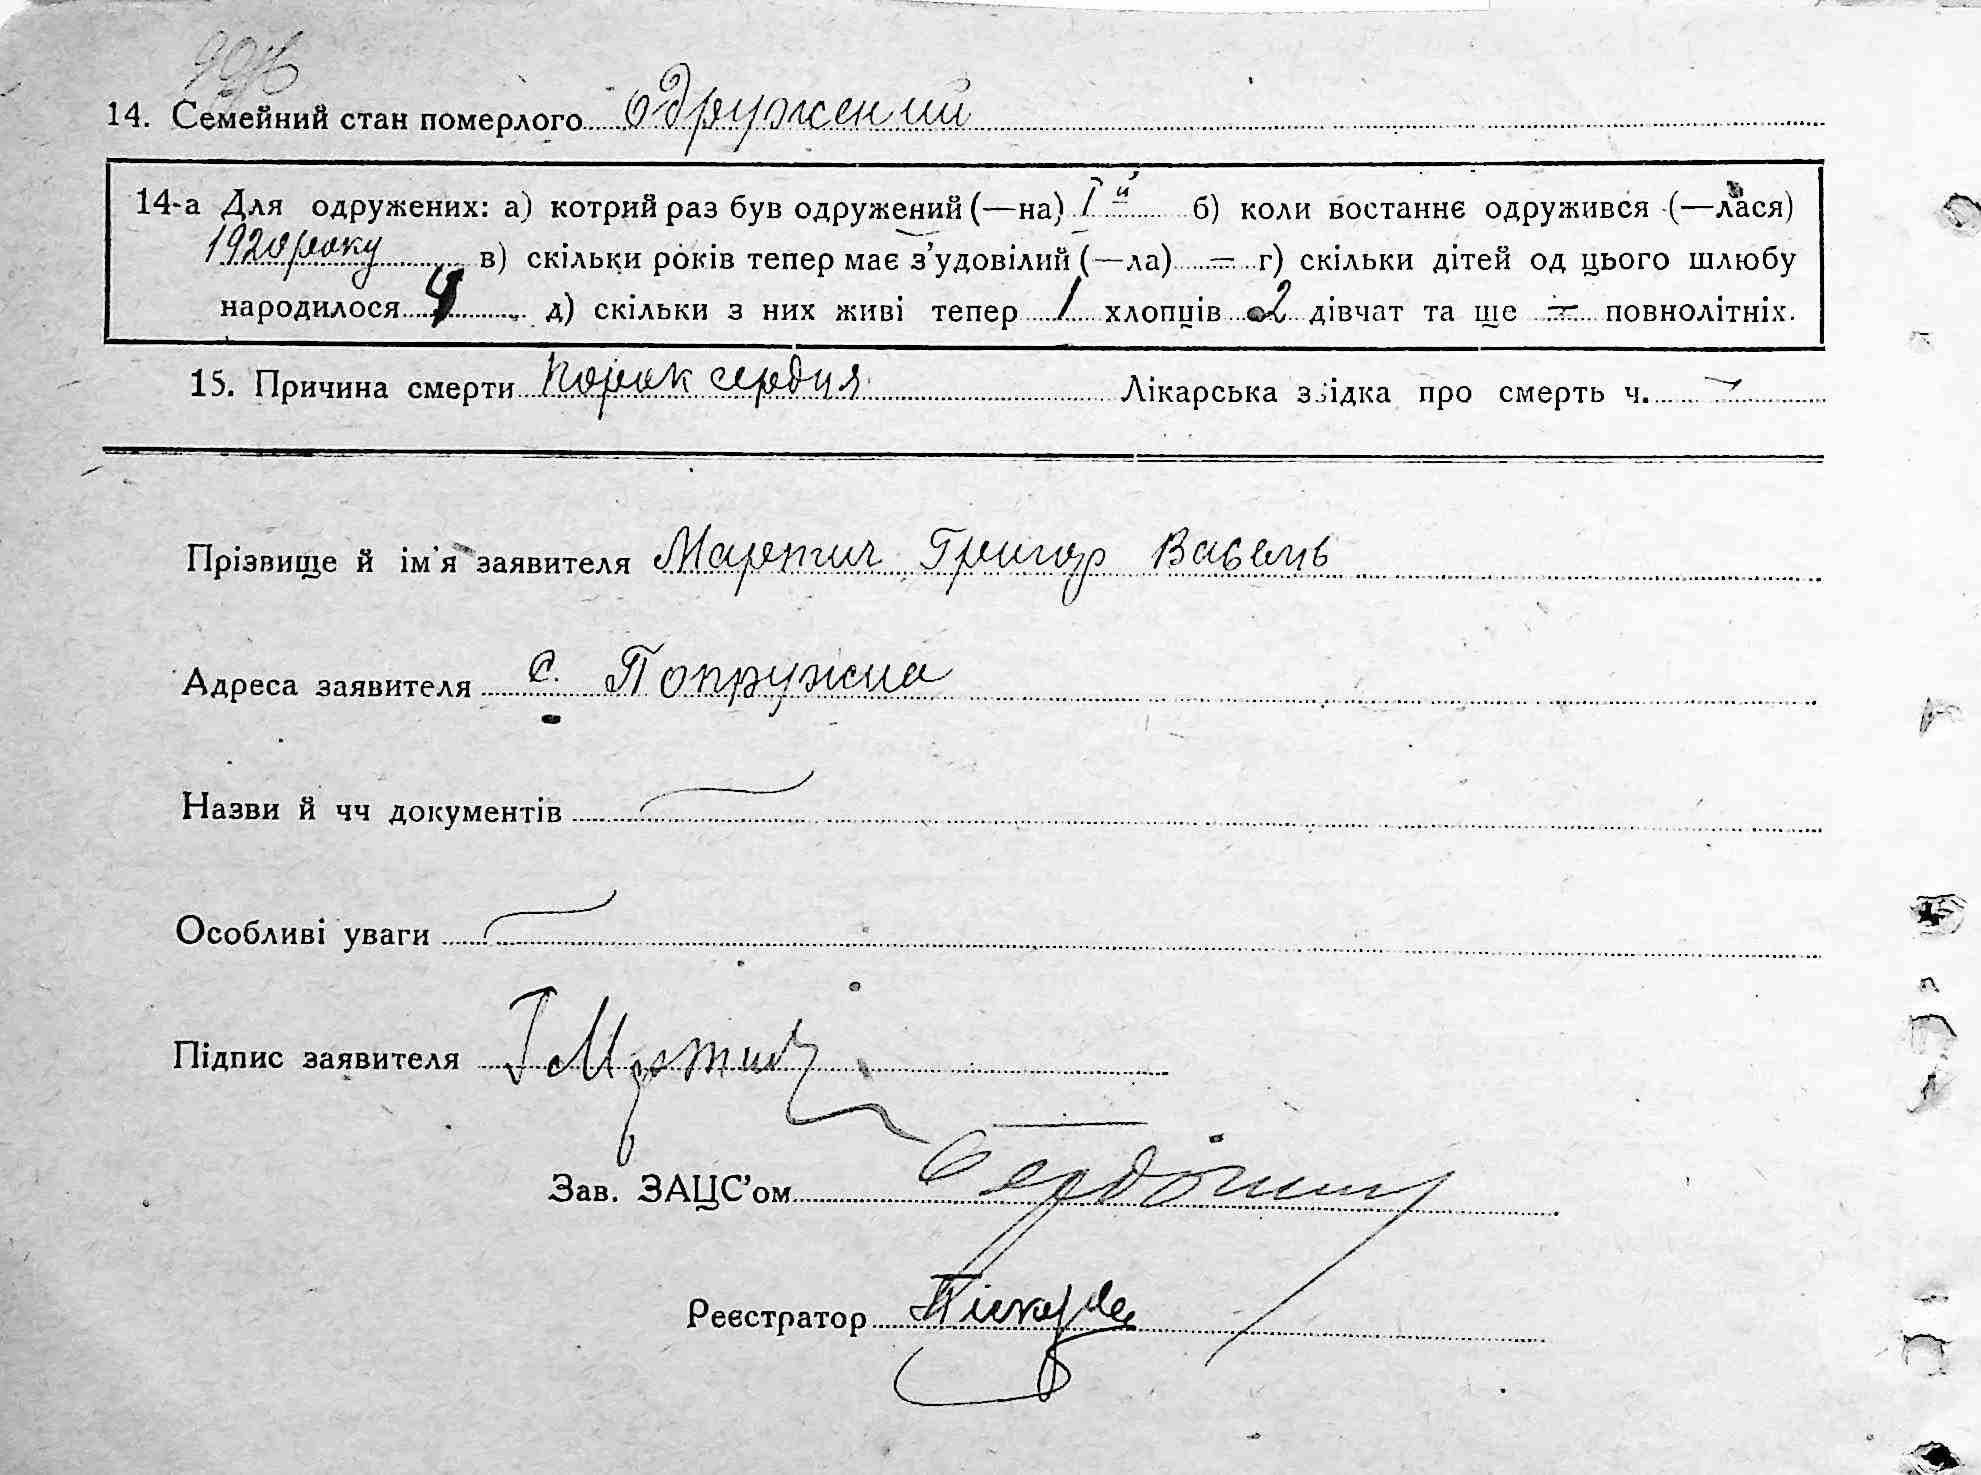 14. Семейний стан померлого одружений
14-а Для одружених: а) котрий раз був одружений (—на) Iй б) коли востаннє одружився (—лася)
1920 року в) скільки років тепер має з’удовілий (—ла) = г) скільки дітей од цього шлюбу
народилося 4 д) скільки з них живі тепер 1 хлопців 2 дівчат та ще = повнолітніх.
15. Причина смерти порок сердця Лікарська звідка про смерть ч.
Прізвище й ім’я заявителя Мартич Григор
Адреса заявителя с. Попружна
Назви й чч документів
Особливі уваги
Підпис заявителя Г Мартич
Зав. ЗАЦС’ом
Реєстратор